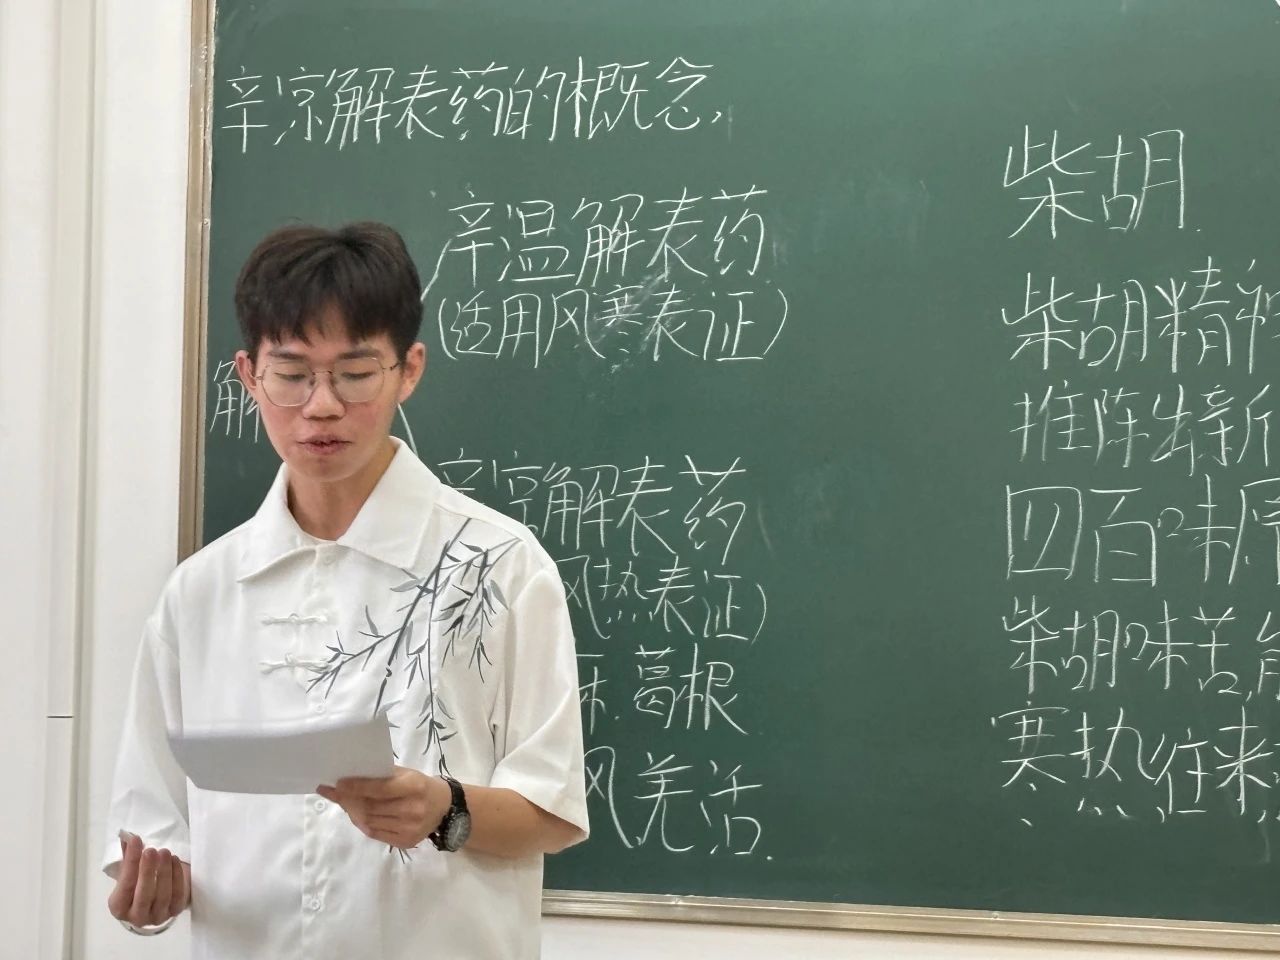 辛凉解表药的概念,
辛温解表药
(适用风寒表证)
解
辛凉解表药
风热表证)
麻.葛根
风羌活.
柴胡.
柴胡精神
推陈出新
四百味
柴胡味苦,能
寒热往来